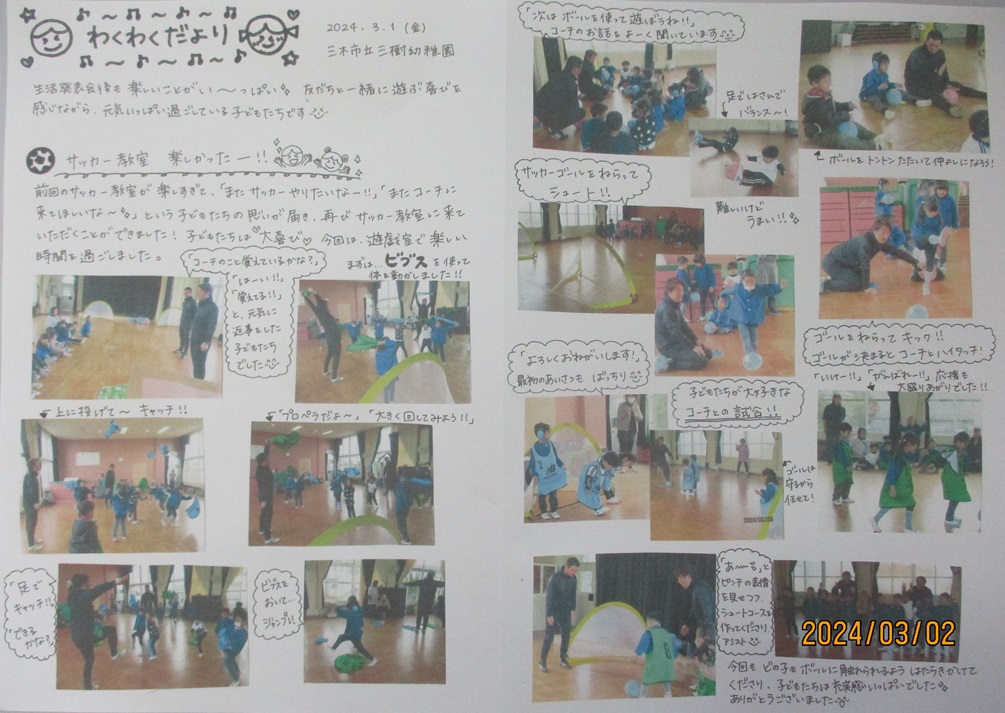 わくわくだより
2024. 3. 1 (金)
三木市立三樹幼稚園
生活発表会後も楽しいことがい〜っぱい 友だちと一緒に遊ぶ喜びを
感じながら、元気いっぱい過ごしている子どもたちです
サッカー教室 楽しかったー!!
前回のサッカー教室が楽しすぎて、「またサッカーやりたいなー!!」「またコーチに
来てほしいな〜」という子どもたちの思いが届き、再びサッカー教室に来て
いただくことができました! 子どもたちは大喜び 今回は、遊戯室で楽しい
時間を過ごしました。
「コーチのこと覚えているかな?」
「はーい!!」
「覚えてる!!」
と、元気に
返事をした
子どもたち
でした
まずは、ビブスを使って
体を動かしました!!
上に投げて〜 キャッチ!!
「プロペラだよ〜」「大きく回してみよう!!」
「足で
キャッチ!!
できる
かな?」
ビブスを
おいて…
ジャンプ!!
「次はボールを使って遊ぼうね!!」
コーチのお話をよーく聞いています
足ではさんで
バランス〜!
難しいけど
うまい!!
ボールをトントンたたいて仲よしになろう!
サッカーゴールをねらって
シュート!!
ゴールをねらって キック!!
ゴールが決まるとコーチとハイタッチ!
「よろしくおねがいします!」
最初のあいさつも ばっちり
子どもたちが大好きな
コーチとの試合!!
「いけー!!」「がんばれー!!」応援も
大盛りあがりでした!!
ゴールは
守るから
任せて!
「あ〜る」と
ピンチの表情
を見せつつ、
シュートコースを
作ってくださり
アシスト
2024/03/02
今回も どの子も ボールに触れられるよう はたらきかけて
くださり、子どもたちは充実感いっぱいでした
ありがとうございました